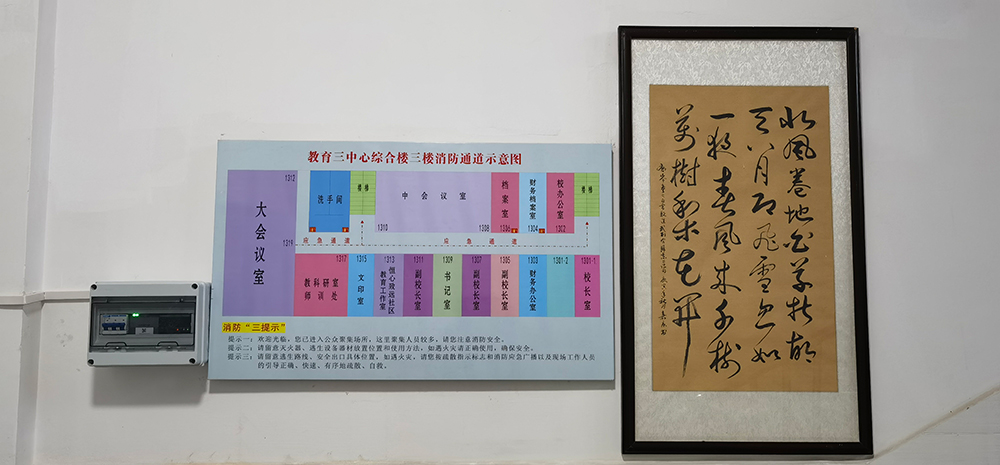 教育三中心综合楼三楼消防通道示意图
1312
大会议室
1319
洗手间
楼梯
中会议室
1310
1308
档案室
1306
财务档案室
1304
校办公室
1302
楼梯
应急通道
应急通道
1317
教科研室
师训处
1315
文印室
1313
恒心致远社区
教育工作室
1311
副校长室
1309
书记室
1307
副校长室
1305
副校长室
1303
财务办公室
1301-2
1301-1
校长室
消防“三提示”
提示一：欢迎光临，您已进入公众聚集场所，这里聚集人员较多，请您注意消防安全。
提示二：请留意灭火器、逃生设备器材放置位置和使用方法，如遇火灾请正确使用，确保安全。
提示三：请留意逃生路线、安全出口具体位置，如遇火灾，请您按疏散指示标志和消防应急广播以及现场工作人员
的引导正确、快速、有序地疏散、自救。
北風卷地白草折胡
天八月即飛雪忽如
一夜春風來千樹
萬樹梨花開